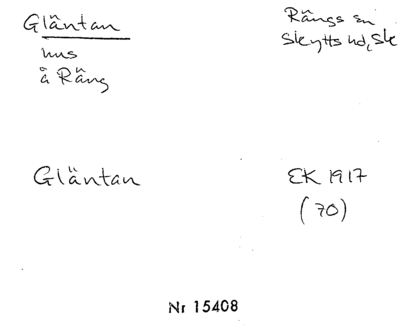 Gläntan
hus
å Räng
Rängs sn
Skytts hd, Sk
Gläntan
EK 1917
(70)
Nr 15408